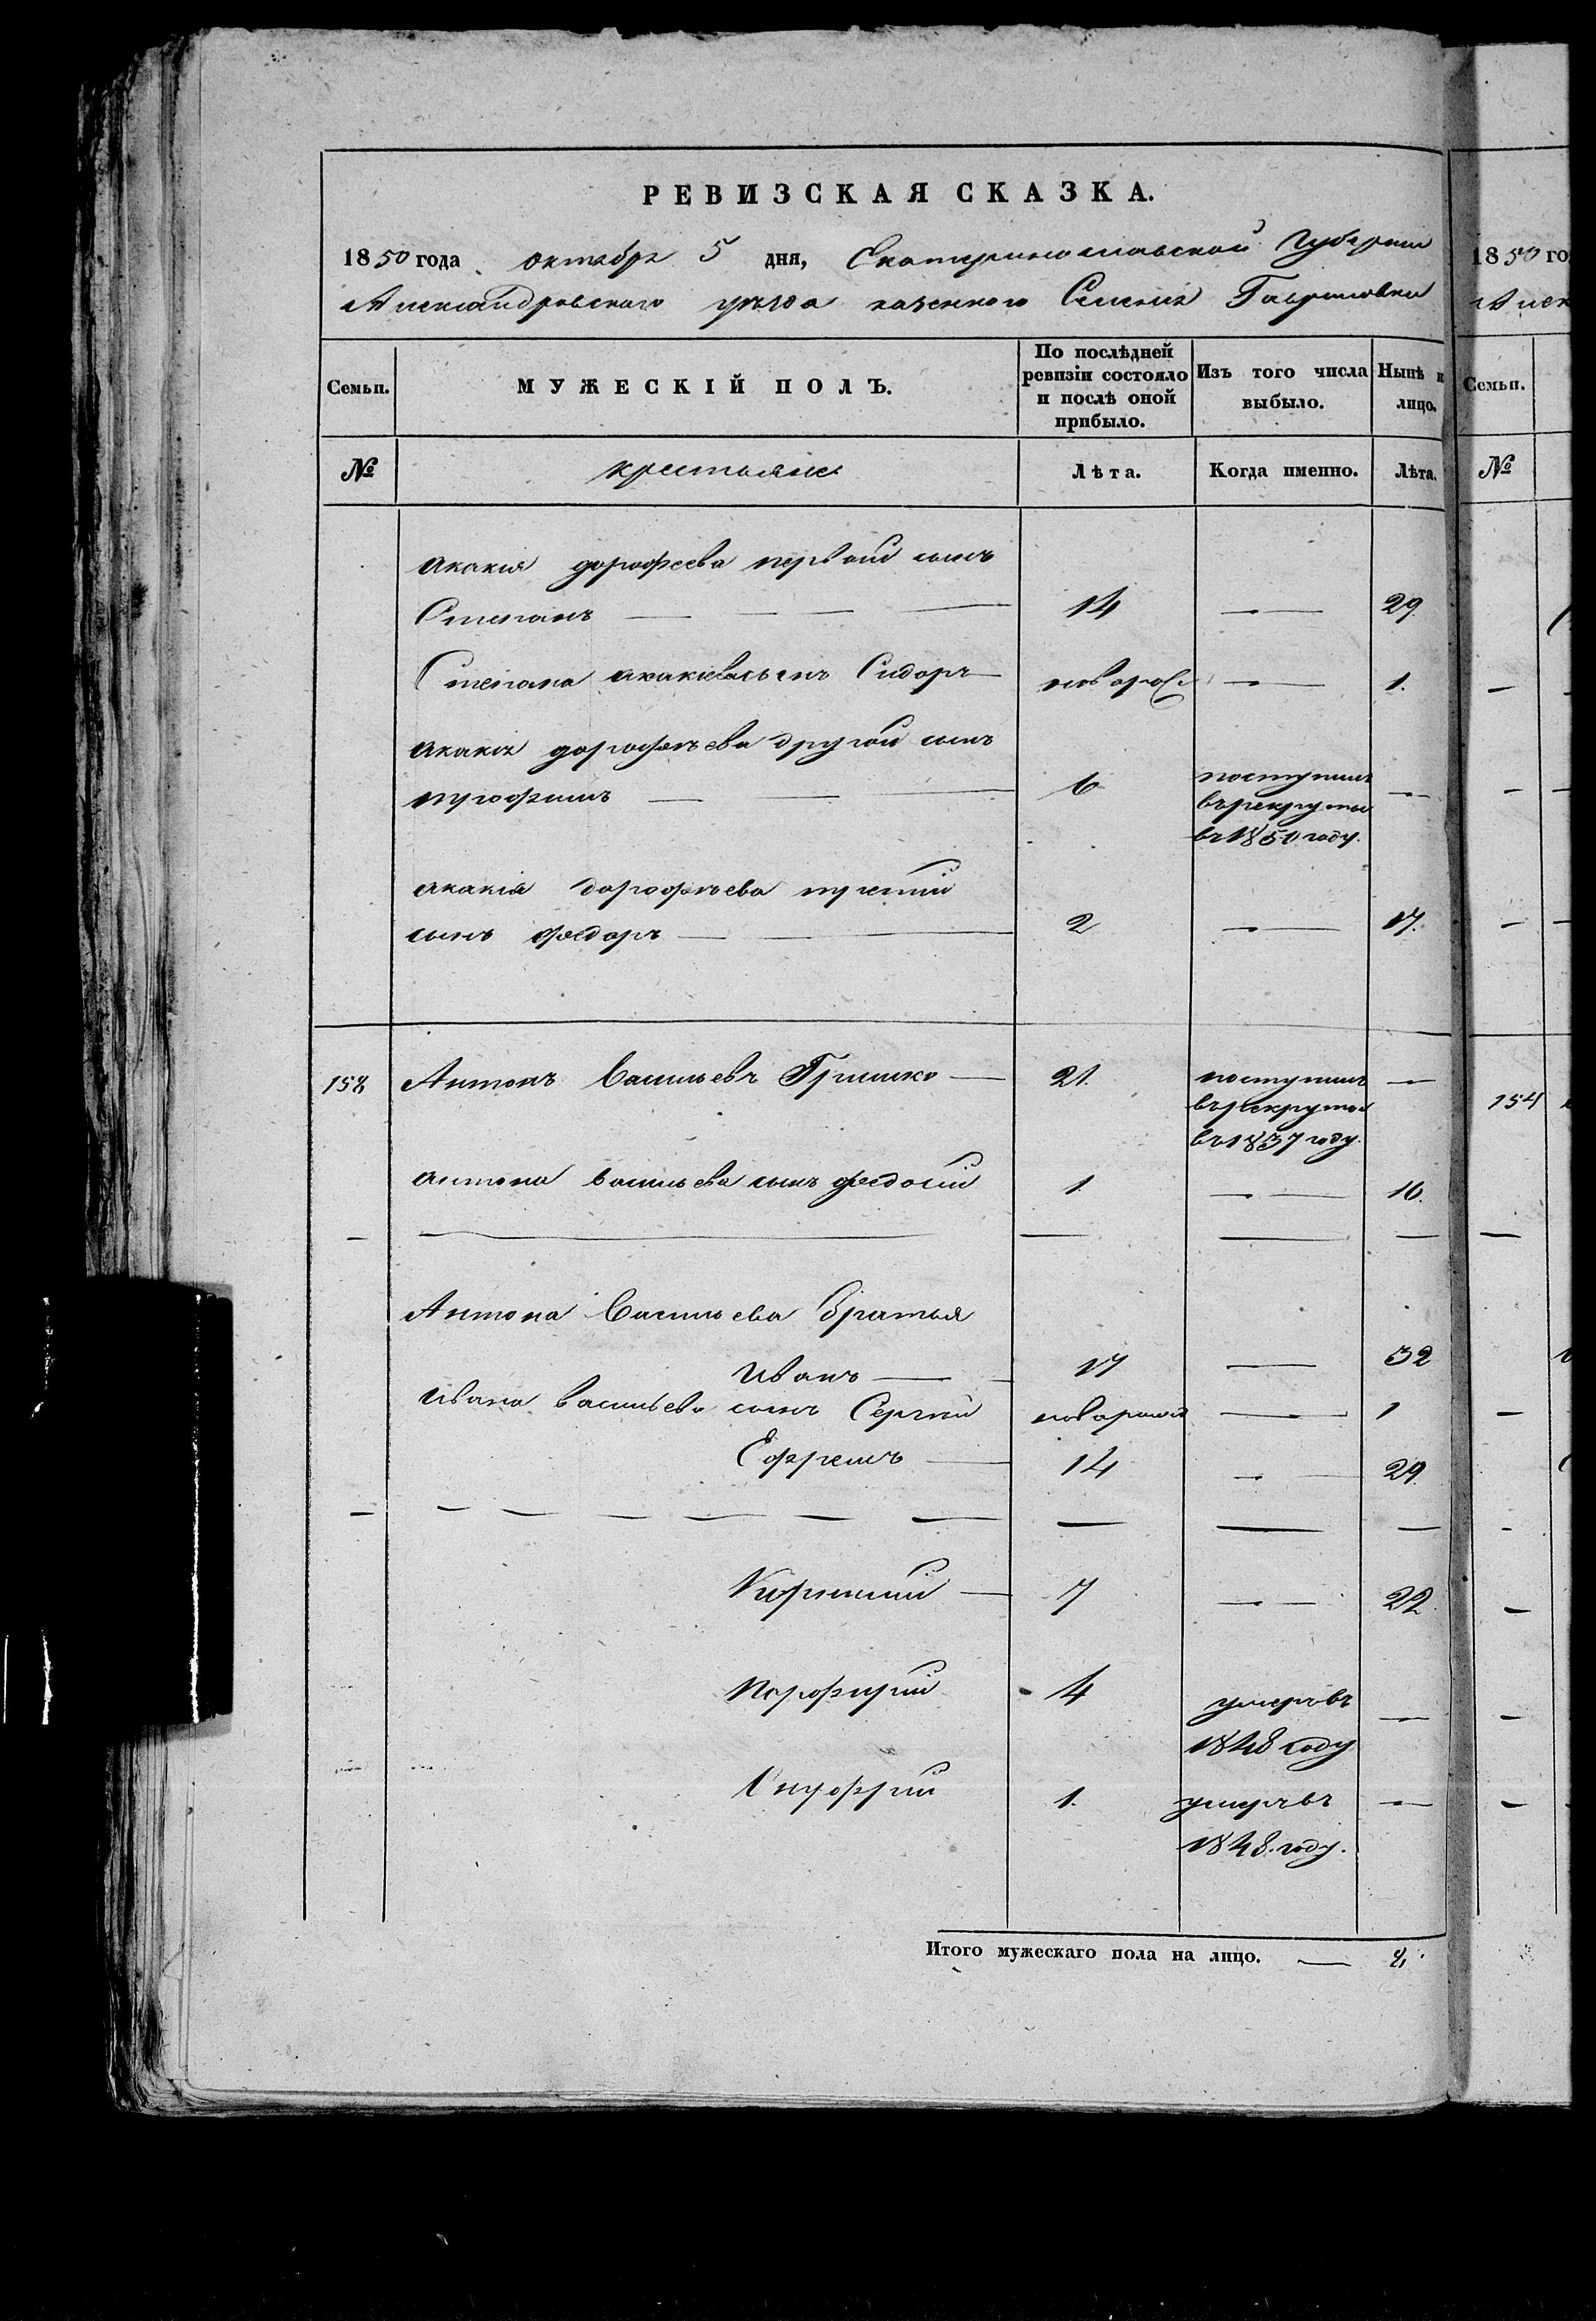 РЕВИЗСКАЯ СКАЗКА.
1850 года октября 5 дня, Екатеринославской Губернии
Александровского уѣзда казенного Селенія Гавриловки
Семьи. МУЖЕСКІЙ ПОЛЪ. По послѣдней ревизіи состояло и послѣ оной прибыло. Изъ того числа выбыло. Нынѣ н лицо.
№ крестьяне Лѣта. Когда именно. Лѣта.
Акакія дорофеева первой сынъ
Степанъ — — — 14 — 29.
Степана акакіева сынъ Сидоръ — новорож — 1.
Акакія дорофѣева другой сынъ
трофимъ — — — 6 поступилъ —
въ рекруты
въ 1850 году.
Акакія дорофѣева третій
сынъ федоръ — — — 2 — 17.
158 Антонъ Васильевъ Гришко — 21. поступилъ —
въ рекруты
въ 1837 году.
Антона васильева сынъ федосій 1. — 16.
Антона Васильева братья
Иванъ — 17 — 32
Ивана васильева сынъ Сергѣй — 1
Ефремъ — 14 — 29.
7 — 22.
Порфирій 4 умеръ въ —
1848 году
Онуфрій 1. умеръ въ —
1848. году.
Итого мужескаго пола на лицо. — 8
1850 го
Алек
Семьи.
№
154